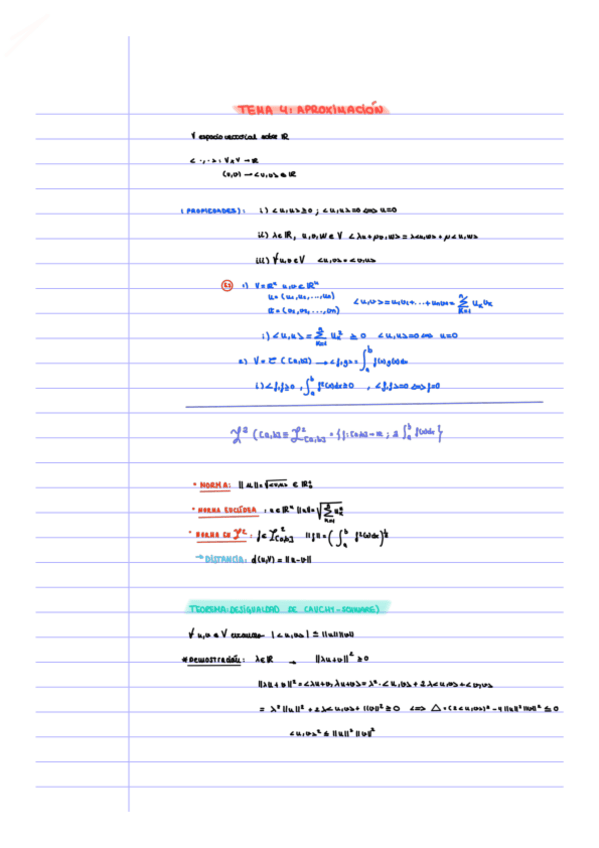 TEMA 4: APROXIMACIÓN
V espacio vectorial sobre ℝ
<·,·>: V×V → ℝ
(u,v) → <u,v> ∈ ℝ
(PROPIEDADES): i) <u,u> ≥ 0 ; <u,u>=0 ⇔ u=0
ii) λ∈ℝ, u,v,w∈V <λu+μv,w> = λ<u,w>+μ<u,w>
iii) ∀u,v∈V <u,v>=<v,u>
1) V=ℝⁿ u,v∈ℝⁿ
u=(u₁,u₂,...,uₙ)
v=(v₁,v₂,...,vₙ) <u,v>=u₁v₁+...+uₙvₙ= Σₖ₌₁ⁿ uₖvₖ
i) <u,u> = Σₖ₌₁ⁿ uₖ² ≥ 0 <u,u>=0 ⇔ u=0
2) V=C([a,b]) → <f,g>=∫ₐᵇ f(x)g(x)dx
i) <f,f>≥0, ∫ₐᵇ f²(x)dx≥0 , <f,f>=0 ⇔ f=0
ℒ²([a,b]) ≡ ℒ²[a,b] = {f:[a,b]→ℝ ; ∃ ∫ₐᵇ f(x)dx}
• NORMA: ||u||=√<u,u> ∈ ℝ₀⁺
• NORMA EUCLÍDEA: u∈ℝⁿ ||u||=√Σₖ₌₁ⁿ uₖ²
• NORMA EN ℒ²: f∈ℒ²[a,b] ||f||=(∫ₐᵇ f²(x)dx)^½
→ DISTANCIA: d(u,v) = ||u-v||
TEOREMA: DESIGUALDAD DE CAUCHY-SCHWARZ)
∀ u,v∈V |<u,v>| ≤ ||u||||v||
*Demostración: λ∈ℝ → ||λu+v||² ≥0
||λu+v||²=<λu+v,λu+v>=λ²·<u,u>+2λ<u,v>+<v,v>
= λ²||u||²+2λ<u,v>+||v||²≥0 ⇔ Δ=(2<u,v>)²-4||u||²||v||²≤0
<u,v>² ≤ ||u||²||v||²